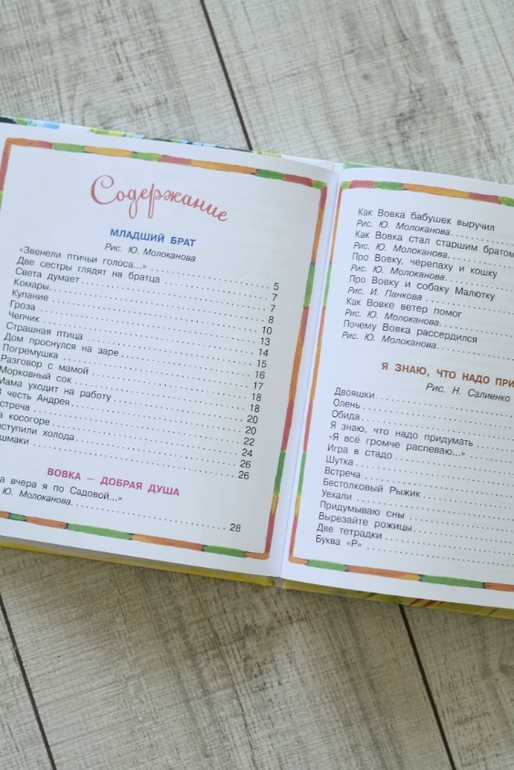 Содержание
МЛАДШИЙ БРАТ
Рис. Ю. Молоканова
«Звенели птичьи голоса...» 5
Две сестры глядят на братца 7
Света думает 7
Комары 8
Купание 10
Гроза 13
Чепчик 14
Страшная птица 15
Дом проснулся на заре 16
Погремушка 17
Разговор с мамой 18
Морковный сок 18
Мама уходит на работу 20
честь Андрея 20
стреча 22
а косогоре 24
ступили холода 26
шмаки 26
ВОВКА — ДОБРАЯ ДУША
а вчера я по Садовой...»
Ю. Молоканова 28
Как Вовка бабушек выручил
Рис. Ю. Молоканова
Как Вовка стал старшим братом
Рис. Ю. Молоканова
Про Вовку, черепаху и кошку
Рис. Ю. Молоканова
Про Вовку и собаку Малютку
Рис. И. Панкова
Как Вовке ветер помог
Рис. Ю. Молоканова
Почему Вовка рассердился
Рис. Ю. Молоканова
Я ЗНАЮ, ЧТО НАДО ПРИ
Рис. Н. Салиенко
Двояшки
Олень
Обида
Я знаю, что надо придумать
«Я всё громче распеваю...»
Игра в стадо
Шутка
Встреча
Бестолковый Рыжик
Уехали
Придумываю сны
Вырезайте рожицы
Две тетрадки
Буква «Р»